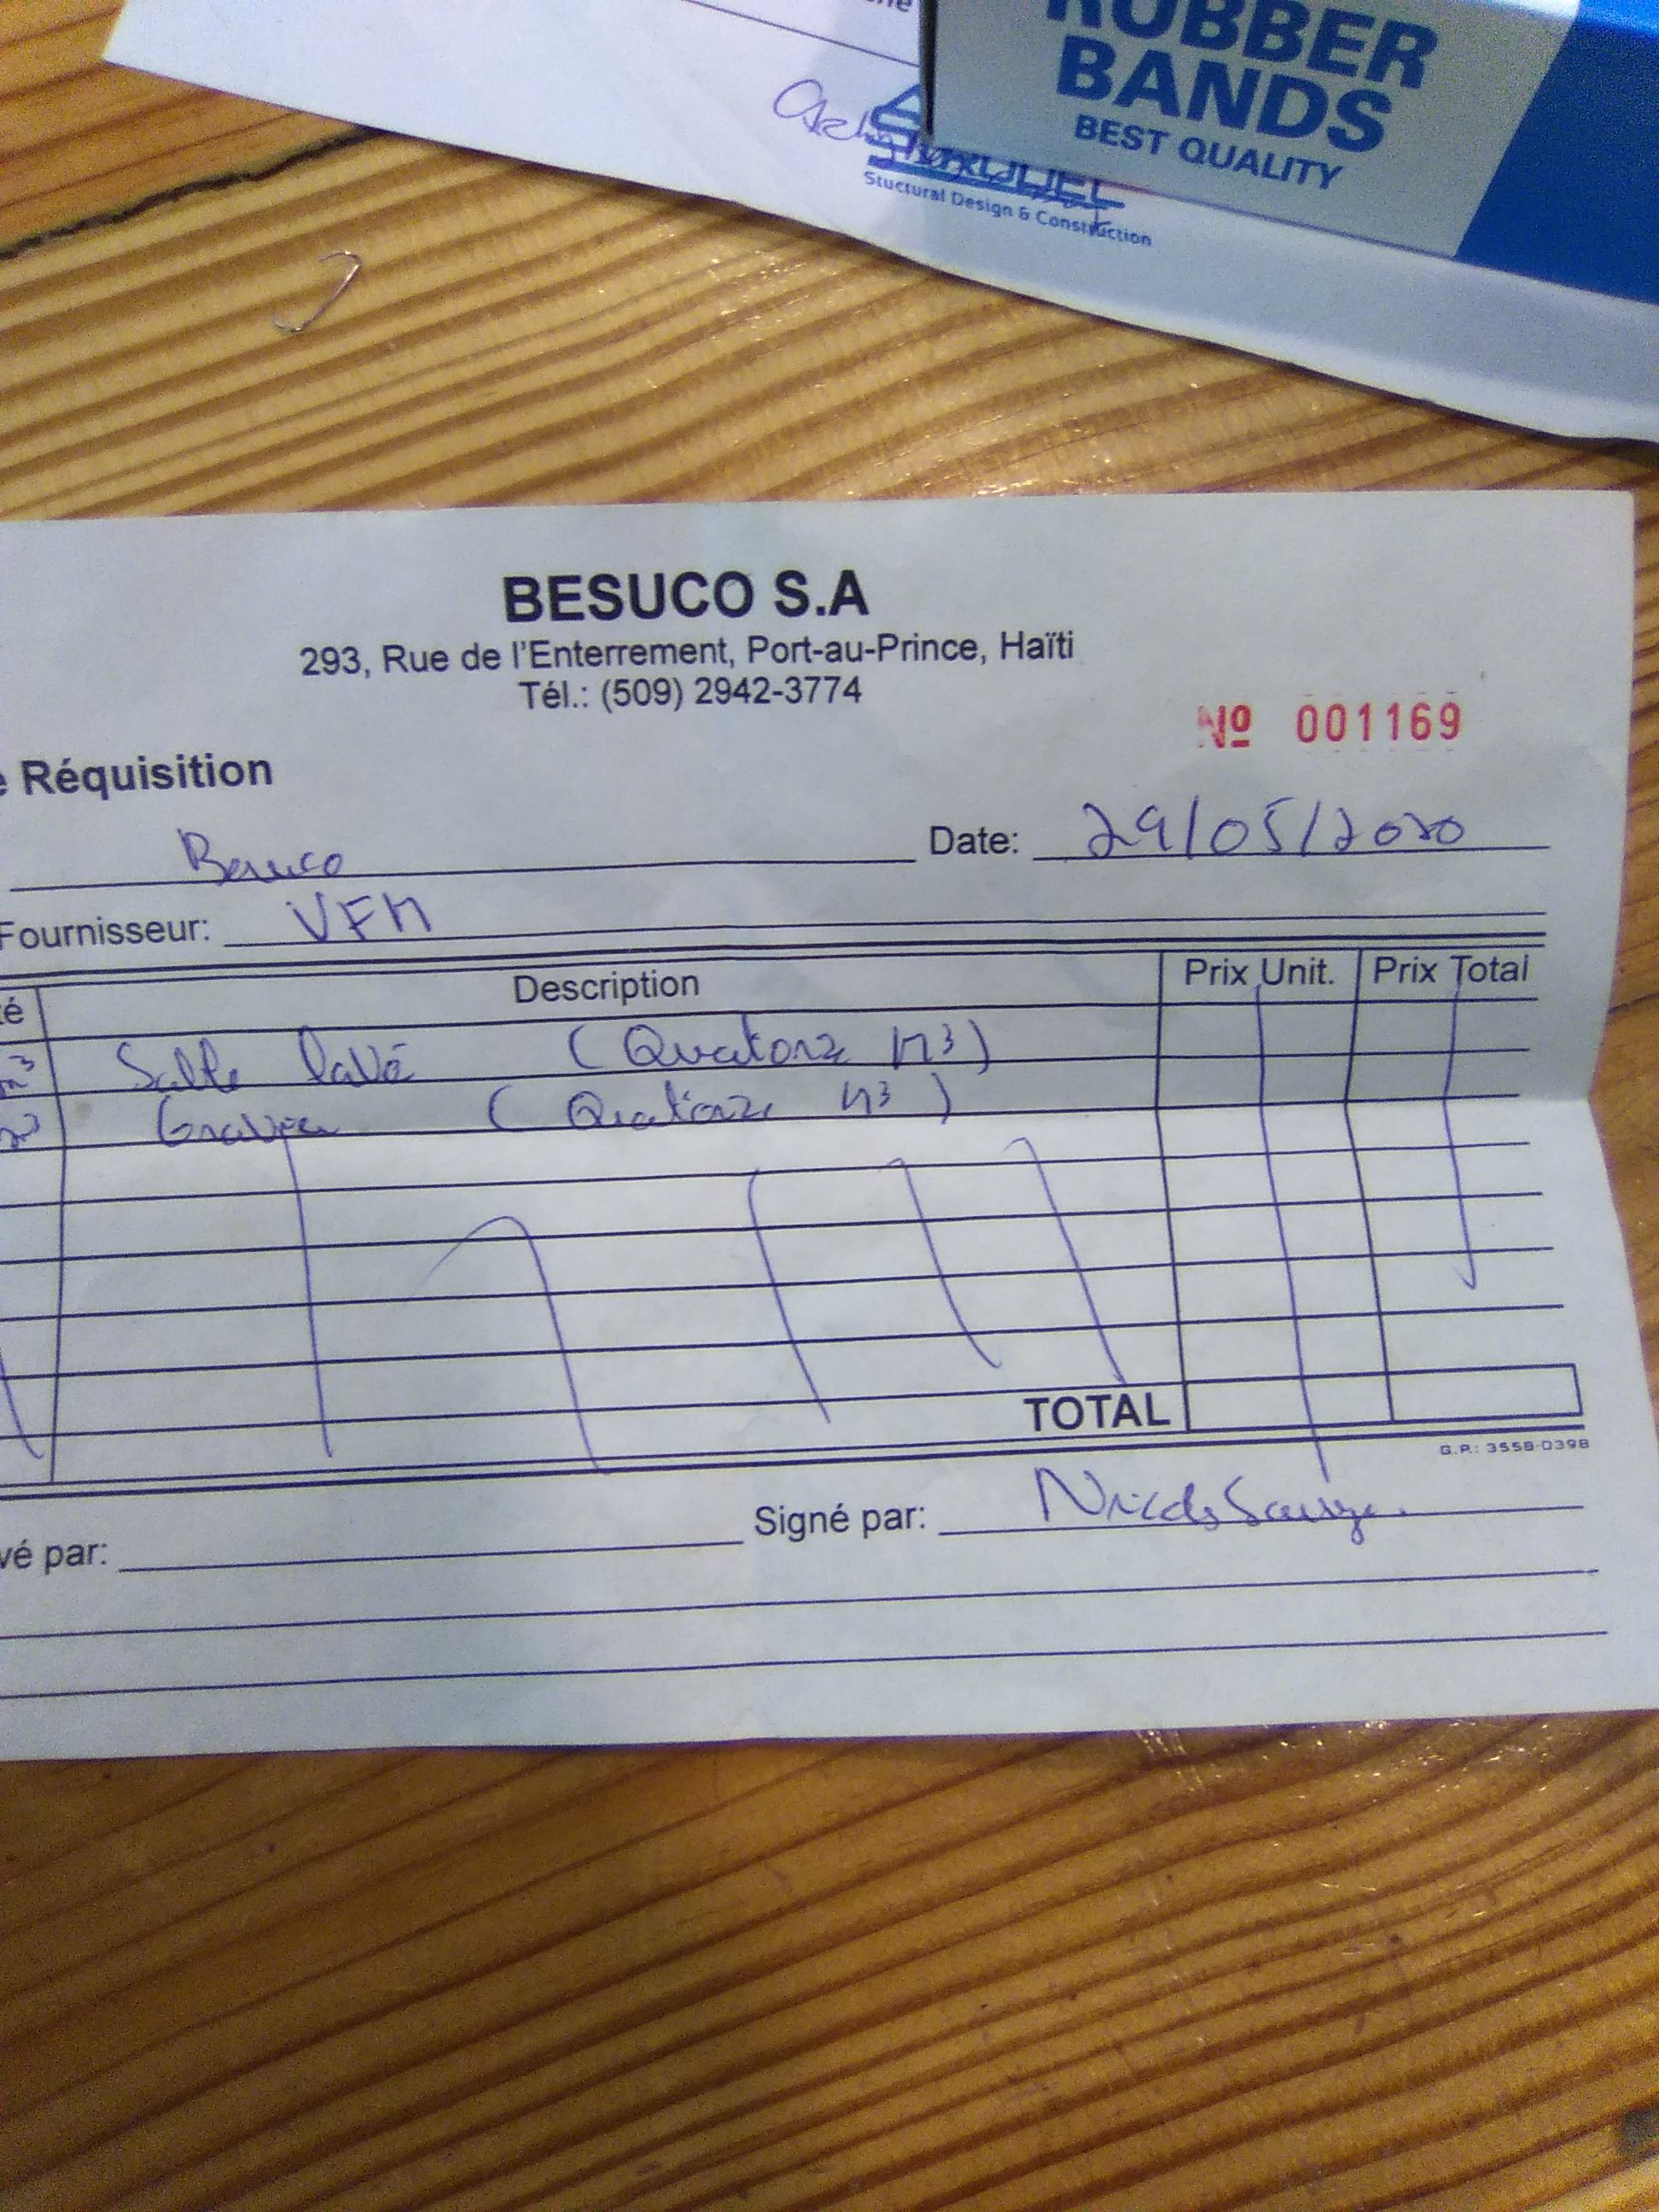 RUBBER
BANDS
BEST QUALITY
Stuctural Design & Construction
BESUCO S.A
293, Rue de l'Enterrement, Port-au-Prince, Haïti
Tél.: (509) 2942-3774
Nº 001169
Réquisition
Besuco Date: 29/05/2020
Fournisseur: VFM
té Description Prix Unit. Prix Total
m³ Sable lavé (Quatorze M³)
m³ Gravier (Quatorze M³)
TOTAL
G.P.: 3558-0398
vé par: Signé par: